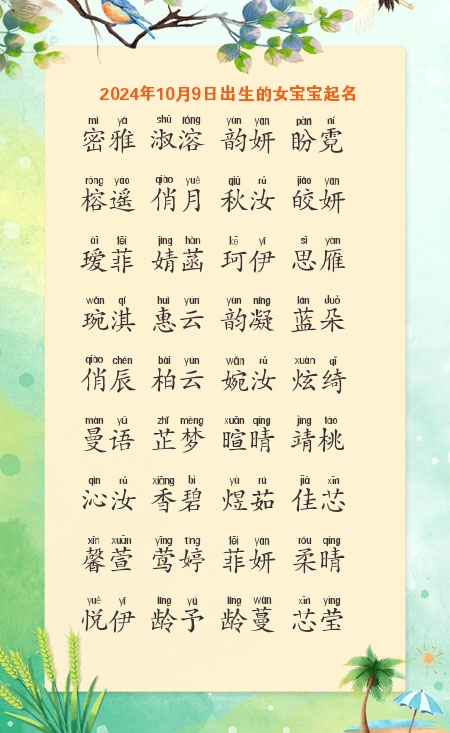 2024年10月9日出生的女宝宝起名
mì yǎ shū róng yùn yán pàn ní
密雅 淑溶 韵妍 盼霓
róng yáo qiào yuè qiū rǔ jiǎo yán
榕遥 俏月 秋汝 皎妍
ài fēi jìng hàn kē yī sī yàn
瑷菲 婧菡 珂伊 思雁
wǎn qí huì yún yùn níng lán duǒ
琬淇 惠云 韵凝 蓝朵
qiào chén bǎi yún wǎn rǔ xuàn qǐ
俏辰 柏云 婉汝 炫绮
màn yǔ zhǐ mèng xuān qíng jìng táo
曼语 芷梦 暄晴 靖桃
qìn rǔ xiāng bì yù rú jiā xīn
沁汝 香碧 煜茹 佳芯
xīn xuān yīng tíng fēi yán róu qíng
馨萱 莺婷 菲妍 柔晴
yuè yī líng yú líng wàn xīn yíng
悦伊 龄予 龄蔓 芯莹